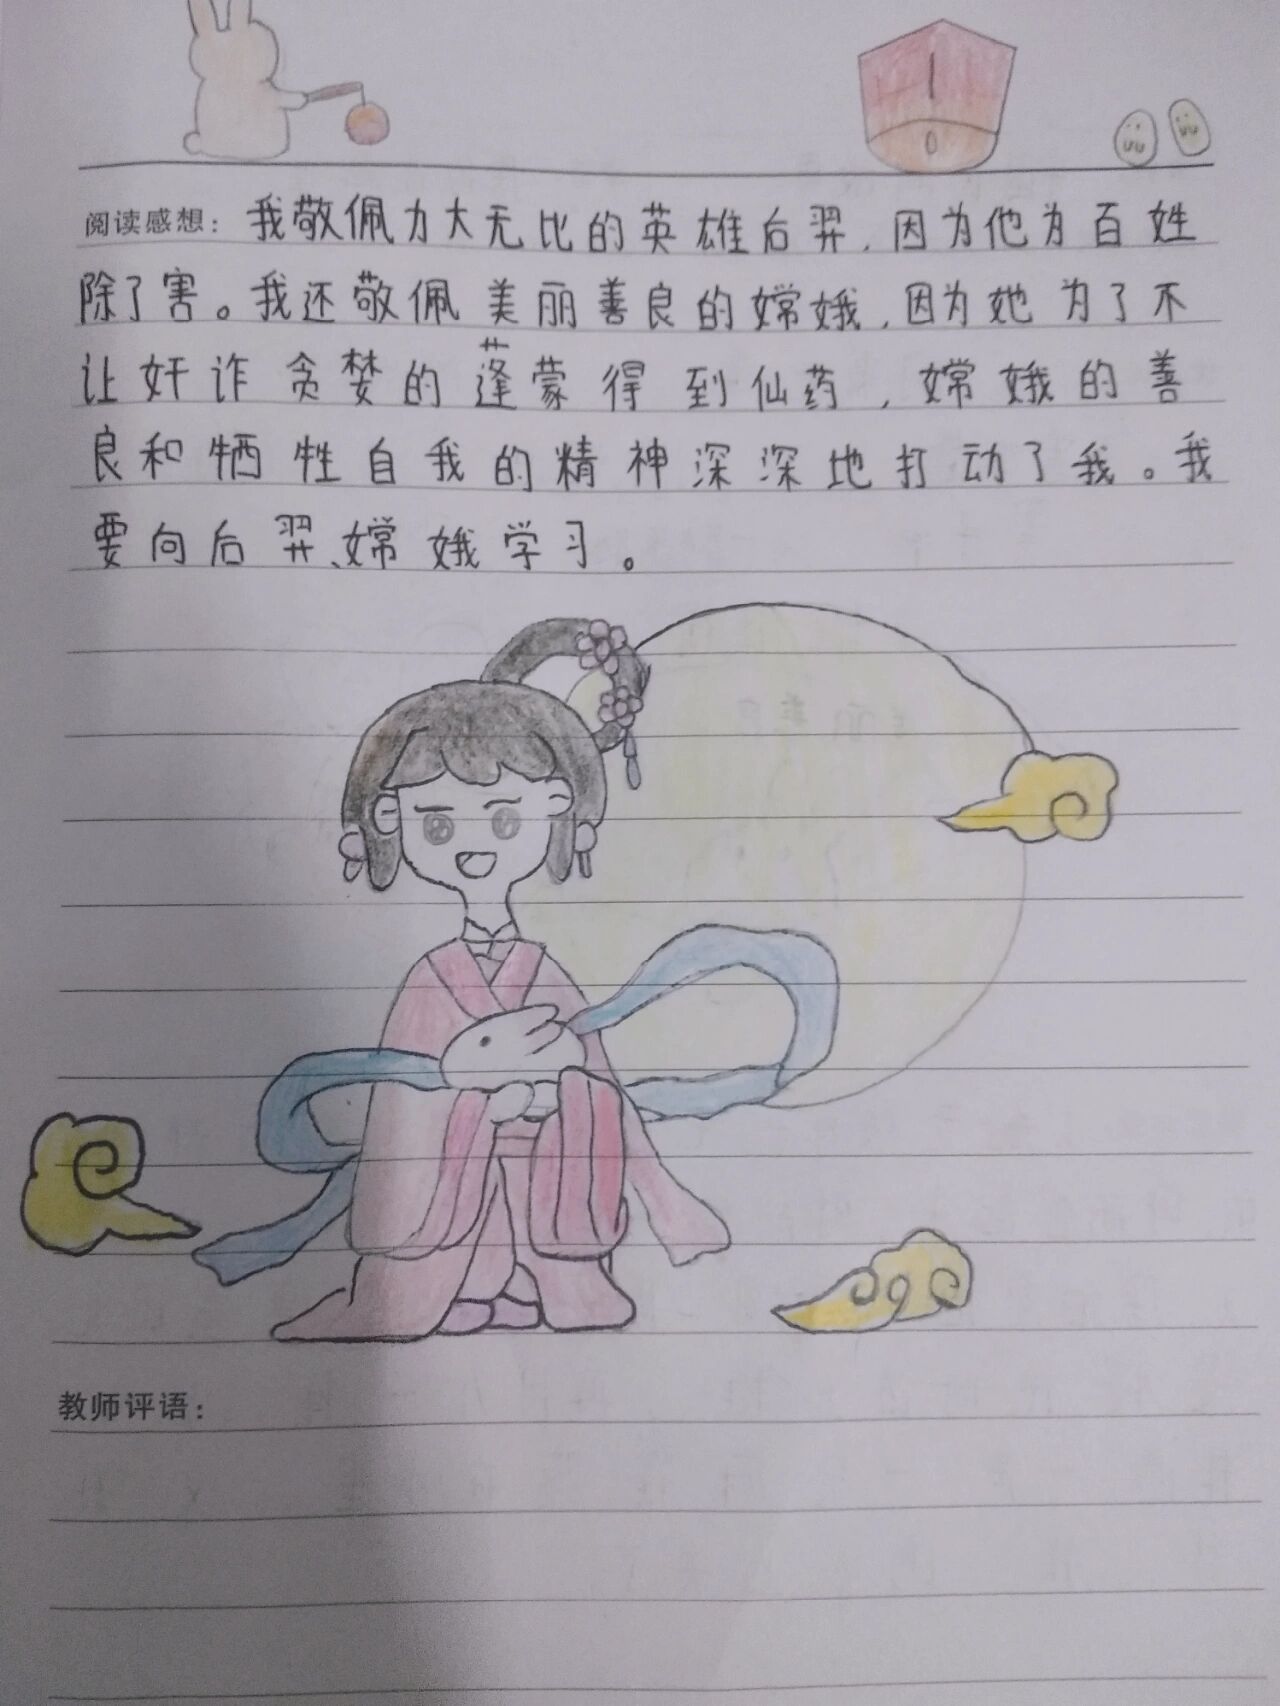 阅读感想：我敬佩力大无比的英雄后羿，因为他为百姓
除了害。我还敬佩美丽善良的嫦娥，因为她为了不
让奸诈贪婪的蓬蒙得到仙药，嫦娥的善
良和牺牲自我的精神深深地打动了我。我
要向后羿、嫦娥学习。
教师评语：